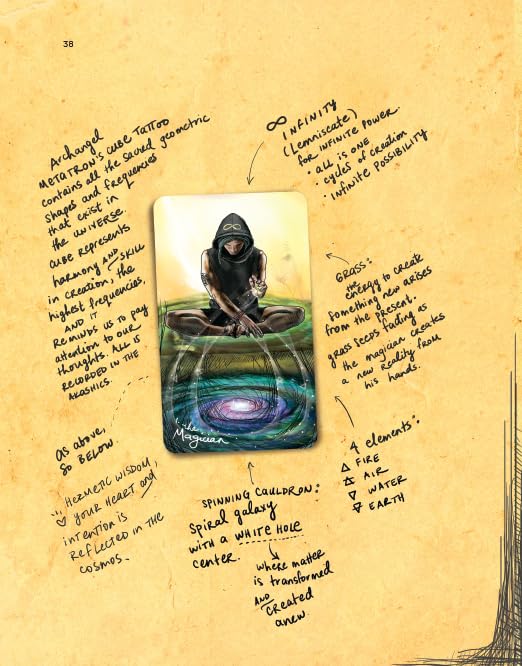 38
Archangel
METATRON'S CUBE TATTOO
contains all the sacred geometric
shapes and frequencies
that exist in
the UNIVERSE.
CUBE REPRESENTS
harmony AND SKILL
in creation, the
highest frequencies,
AND IT
REMINDS US TO PAY
attention to our
thoughts. ALL IS
RECORDED IN THE
AKASHICS.
∞ INFINITY
(Lemniscate)
FOR INFINITE POWER.
• ALL IS ONE
• cycles of creation
• INFINITE POSSIBILITY
GRASS:
the energy to create
something new arises
from the present.
grass seeds fading as
the magician creates
a new reality from
his hands.
∞
1: the
Magician
As above,
SO BELOW.
HERMETIC WISDOM,
YOUR HEART and
intention is
REFLECTED IN THE
COSMOS.
4 elements:
🜂 FIRE
🜁 AIR
🜄 WATER
🜃 EARTH
SPINNING CAULDRON:
Spiral galaxy
WITH A WHITE HOLE
center.
where matter
is transformed
AND created
anew.